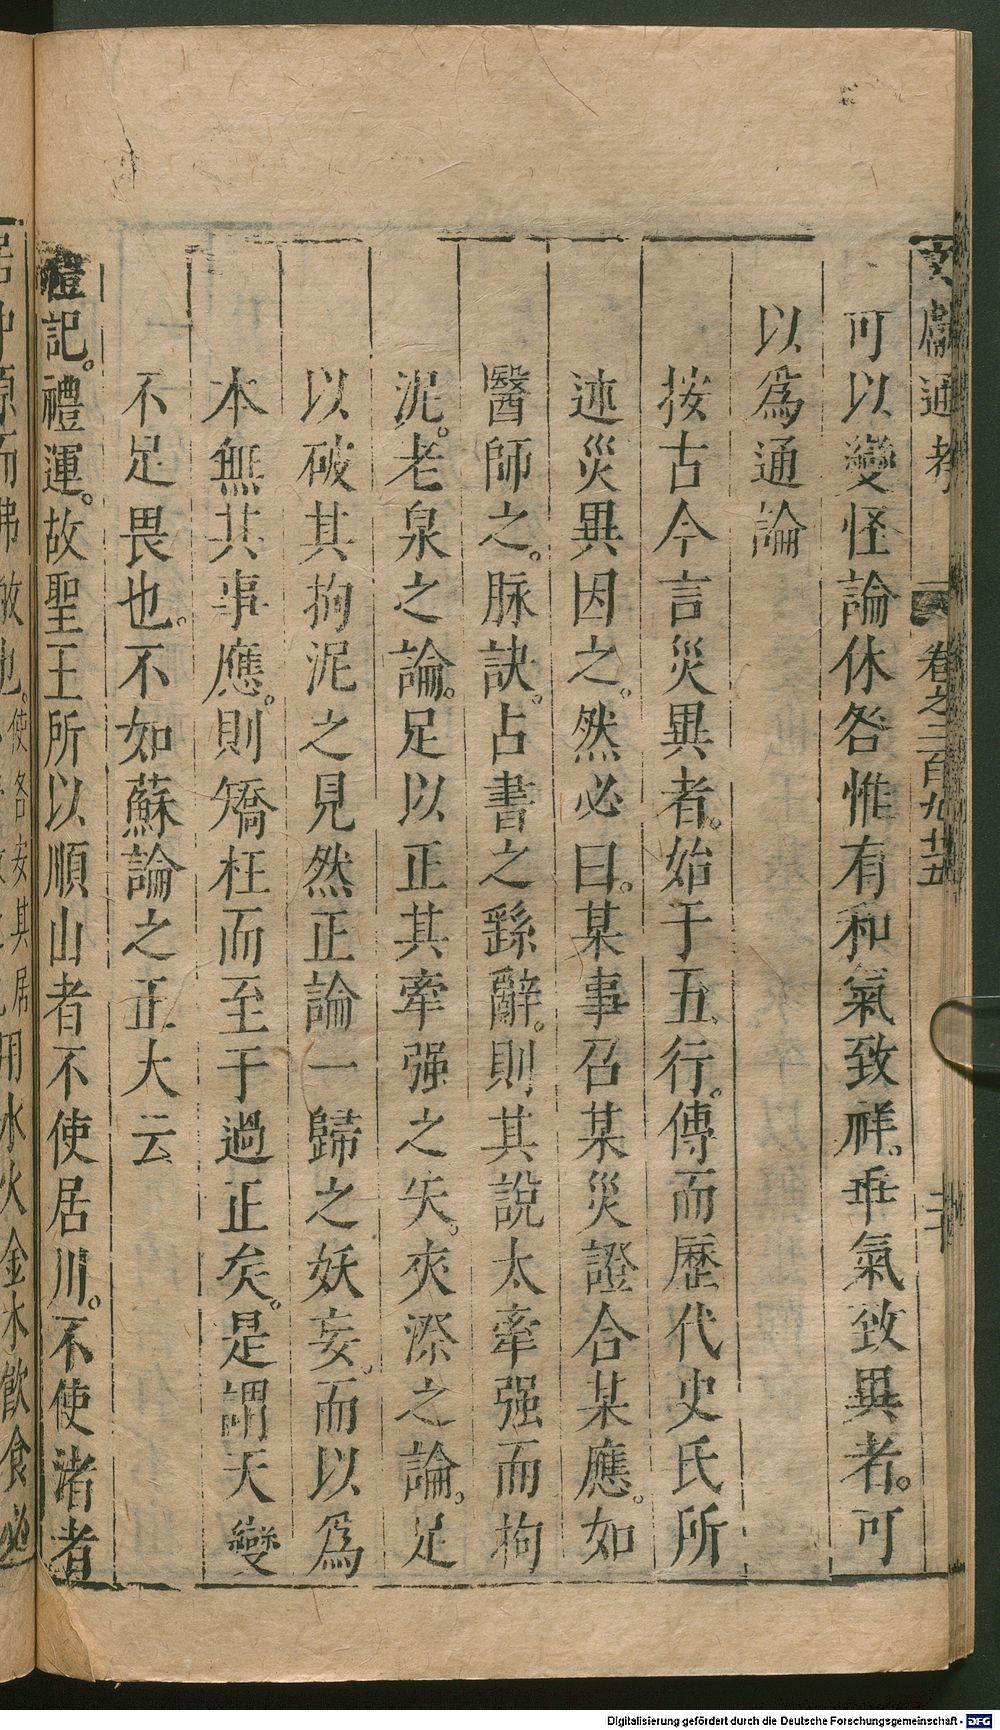 文獻通考 卷之二百九十五 二十
可以變怪論休咎惟有和氣致祥。乖氣致異者。可
以爲通論
按古今言災異者。始于五行。傳而歷代史氏所
述災異因之。然必曰。某事召某災證合某應。如
醫師之。脉訣。占書之繇辭。則其說太牽强而拘
泥。老泉之論。足以正其牽强之失。夾漈之論。足
以破其拘泥之見然正論一歸之妖妄。而以爲
本無其事應。則矯枉而至于過正矣。是謂天變
不足畏也。不如蘇論之正大云
禮記。禮運。故聖王所以順山者不使居川。不使渚者
居中原而弗敝也。使各安其居 用水火金木飲食必
Digitalisierung gefördert durch die Deutsche Forschungsgemeinschaft - DFG